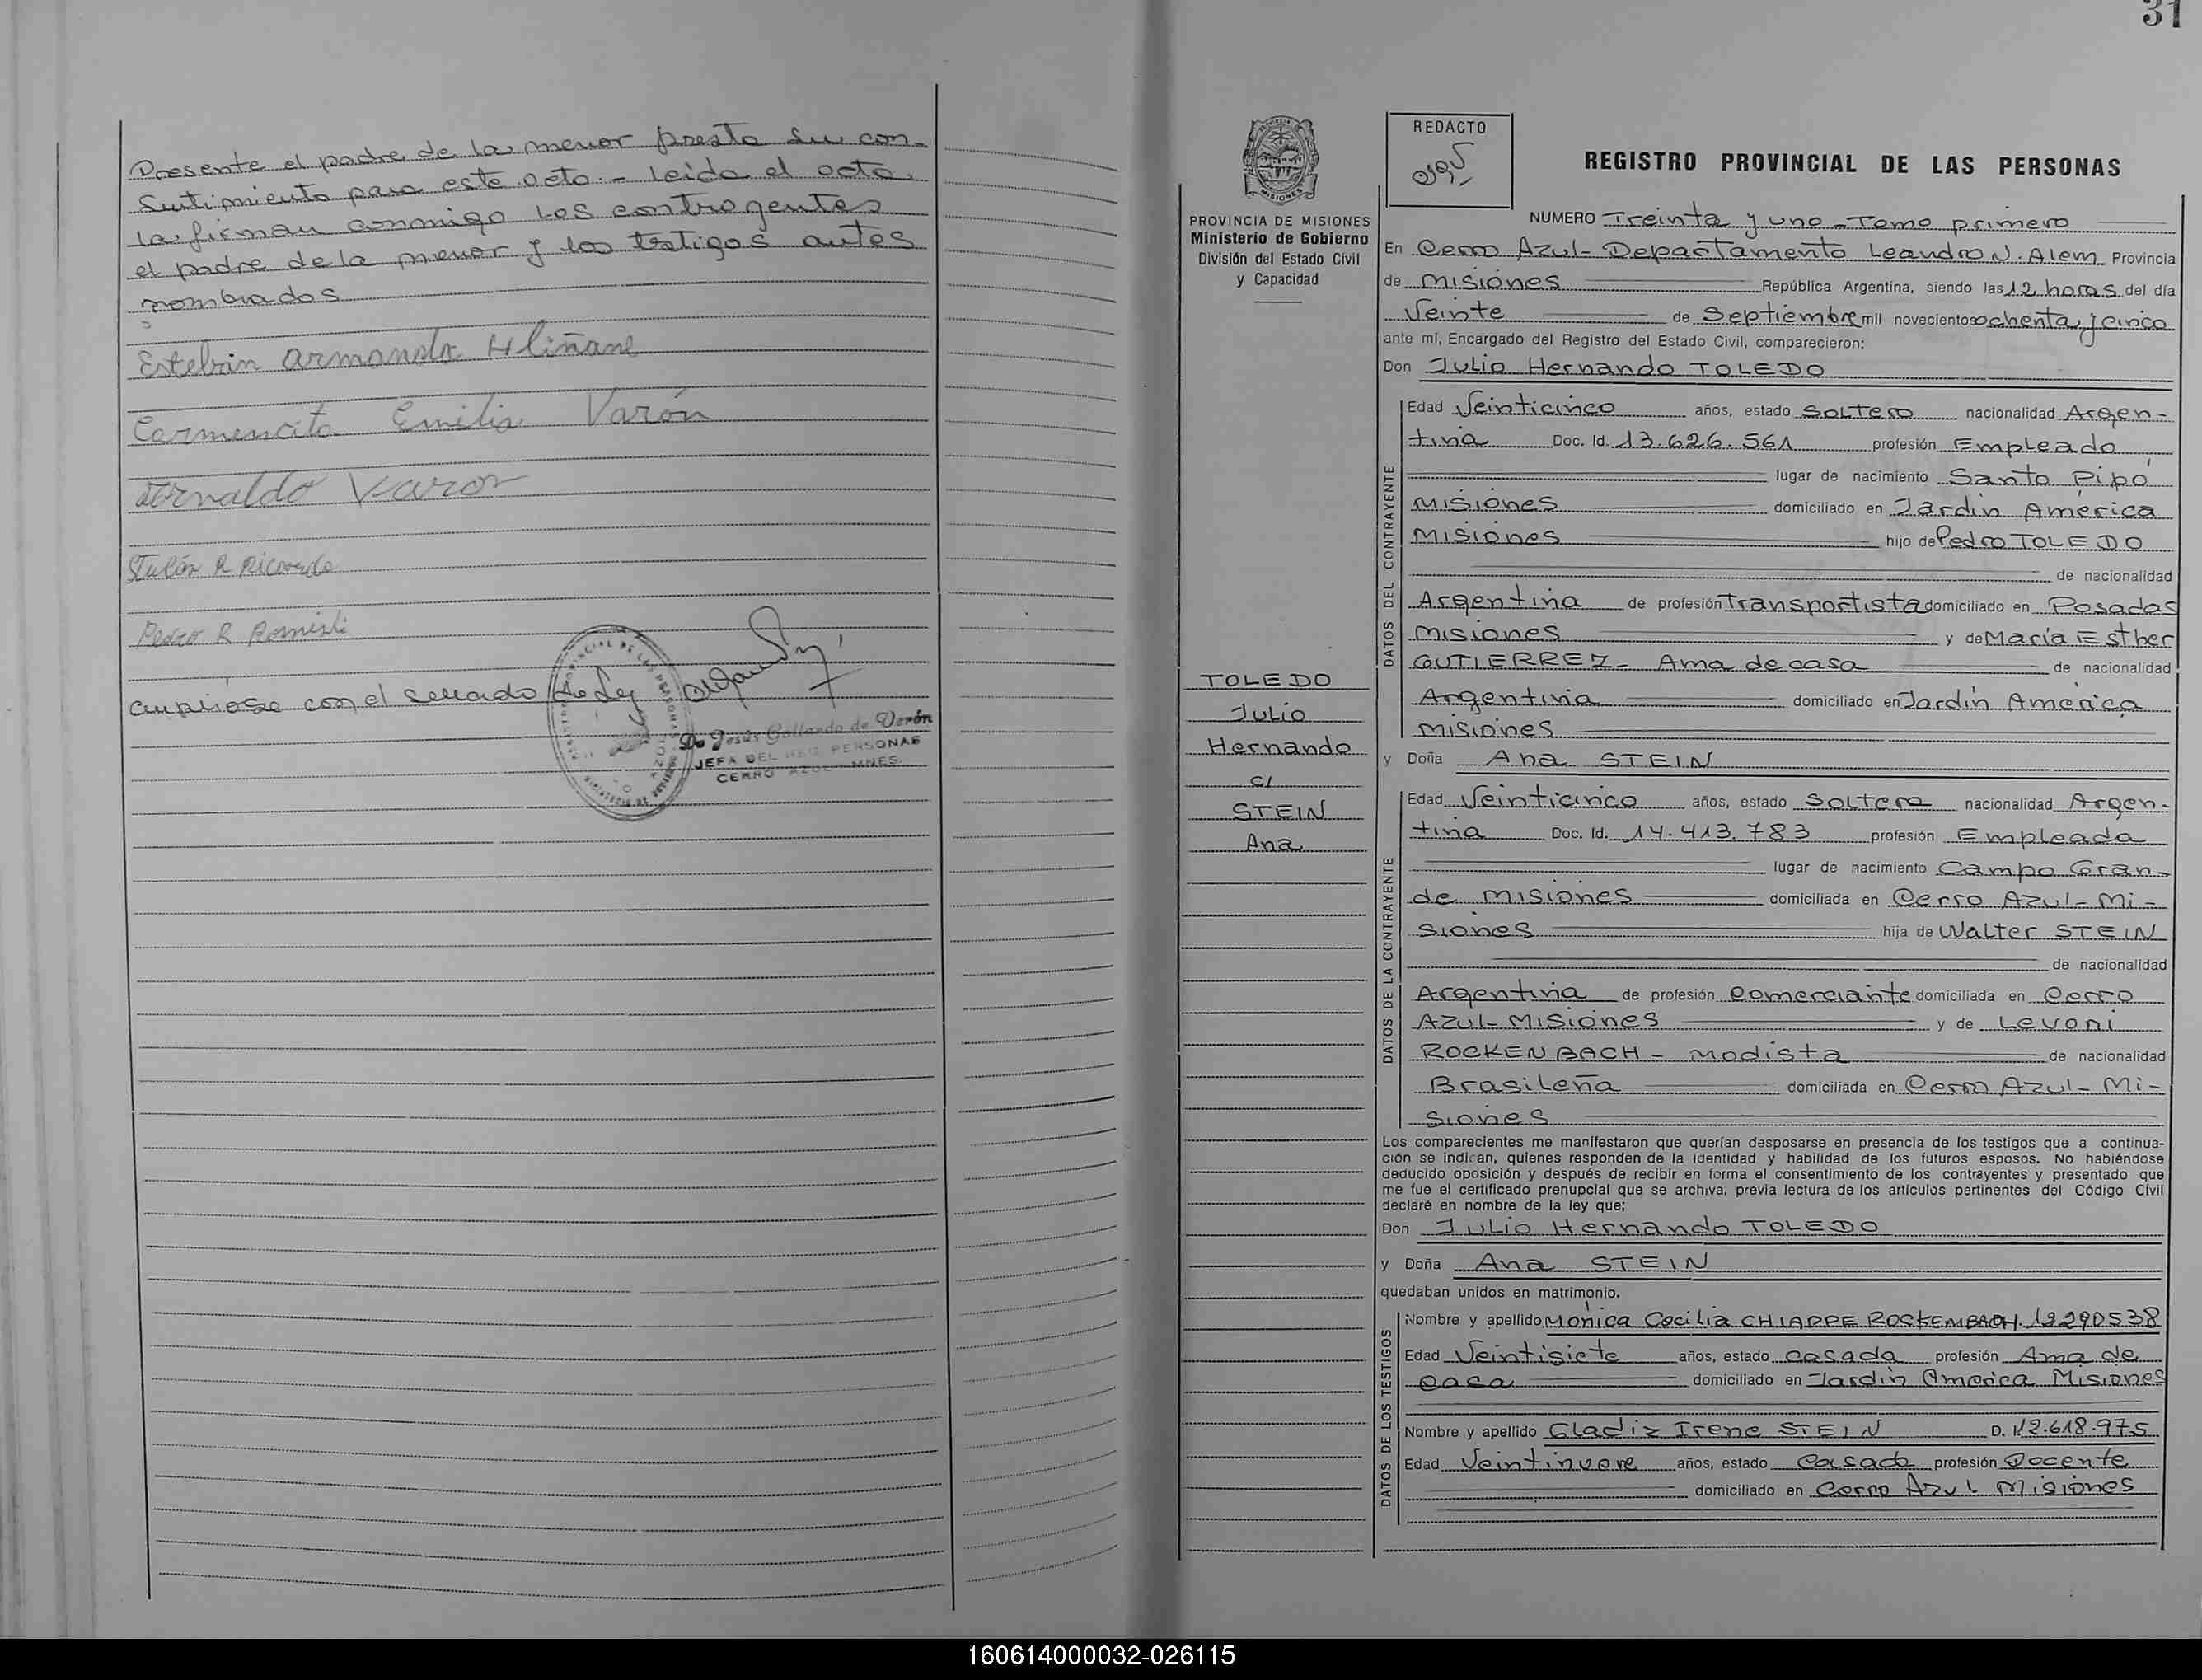 Presente el padre de la menor presta su con-
sentimiento para este acto.- Leida el acta,
la firman conmigo los contrayentes
el padre de la menor y los testigos antes
nombrados
Esteban Armando
Carmencita Emilia Varón
Arnaldo Varon
Pedro R
cumpliose con el sellado de Ley
De Jesús Gallardo de Verón
JEFA DEL REG. PERSONAS
CERRO AZUL - MNES.
31
PROVINCIA DE MISIONES
Ministerio de Gobierno
División del Estado Civil
y Capacidad
TOLEDO
Julio
Hernando
c/
STEIN
Ana
REDACTO
REGISTRO PROVINCIAL DE LAS PERSONAS
NUMERO Treinta y uno - Tomo primero
En Cerro Azul - Departamento Leandro N. Alem Provincia
de Misiones República Argentina, siendo las 12 horas del día
Veinte de Septiembre mil novecientos ochenta y cinco
ante mí, Encargado del Registro del Estado Civil, comparecieron:
Don Julio Hernando TOLEDO
DATOS DEL CONTRAYENTE
Edad Veinticinco años, estado Soltero nacionalidad Argen-
tina Doc. Id. 13.626.561 profesión Empleado
lugar de nacimiento Santo Pipó
Misiones domiciliado en Jardín América
Misiones hijo de Pedro TOLEDO
de nacionalidad
Argentina de profesión Transportista domiciliado en Posadas
Misiones y de María Esther
GUTIERREZ - Ama de casa de nacionalidad
Argentina domiciliado en Jardín América
Misiones
y Doña Ana STEIN
DATOS DE LA CONTRAYENTE
Edad Veinticinco años, estado Soltera nacionalidad Argen-
tina Doc. Id. 14.413.783 profesión Empleada
lugar de nacimiento Campo Gran-
de Misiones domiciliada en Cerro Azul - Mi-
siones hija de Walter STEIN
de nacionalidad
Argentina de profesión Comerciante domiciliada en Cerro
Azul - Misiones y de Levoni
ROCKENBACH - Modista de nacionalidad
Brasileña domiciliada en Cerro Azul - Mi-
siones
Los comparecientes me manifestaron que querían desposarse en presencia de los testigos que a continua-
ción se indican, quienes responden de la identidad y habilidad de los futuros esposos. No habiéndose
deducido oposición y después de recibir en forma el consentimiento de los contrayentes y presentado que
me fue el certificado prenupcial que se archiva, previa lectura de los artículos pertinentes del Código Civil
declaré en nombre de la ley que;
Don Julio Hernando TOLEDO
y Doña Ana STEIN
quedaban unidos en matrimonio.
DATOS DE LOS TESTIGOS
Nombre y apellido Mónica Cecilia CHIAPPE ROCKEMBACH 12290538
Edad Veintisiete años, estado casada profesión Ama de
casa domiciliado en Jardín América Misiones
Nombre y apellido Gladiz Irene STEIN D. I. 12.618.975
Edad Veintinueve años, estado Casada profesión Docente
domiciliado en Cerro Azul Misiones
160614000032-026115